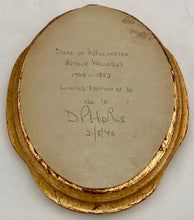 Duke of Wellington
Arthur Wellesley
1769 - 1852
Limited Edition of 30
No. 10
21/5/96